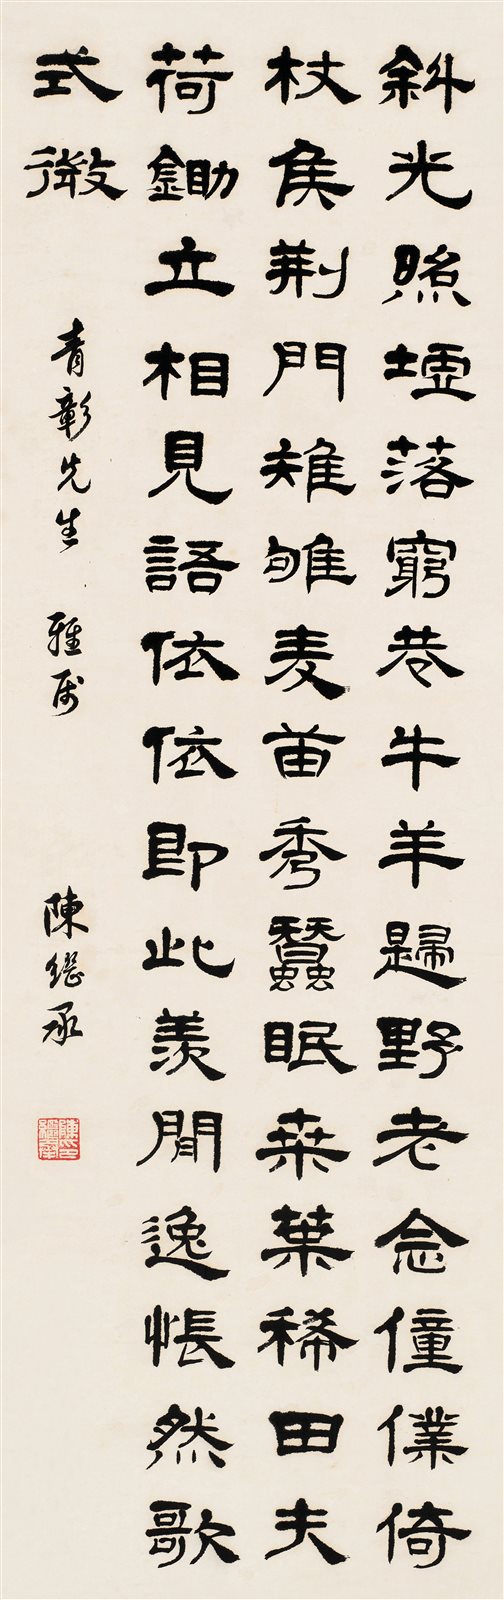 斜光照墟落窮巷牛羊歸野老念僮僕倚
杖矦荊門雉雊麦苗秀蠶眠桒葉稀田夫
荷鋤立相見語依依即此羨閒逸悵然歌
式微
青彰先生 雅属
陳繼承
陳印繼承